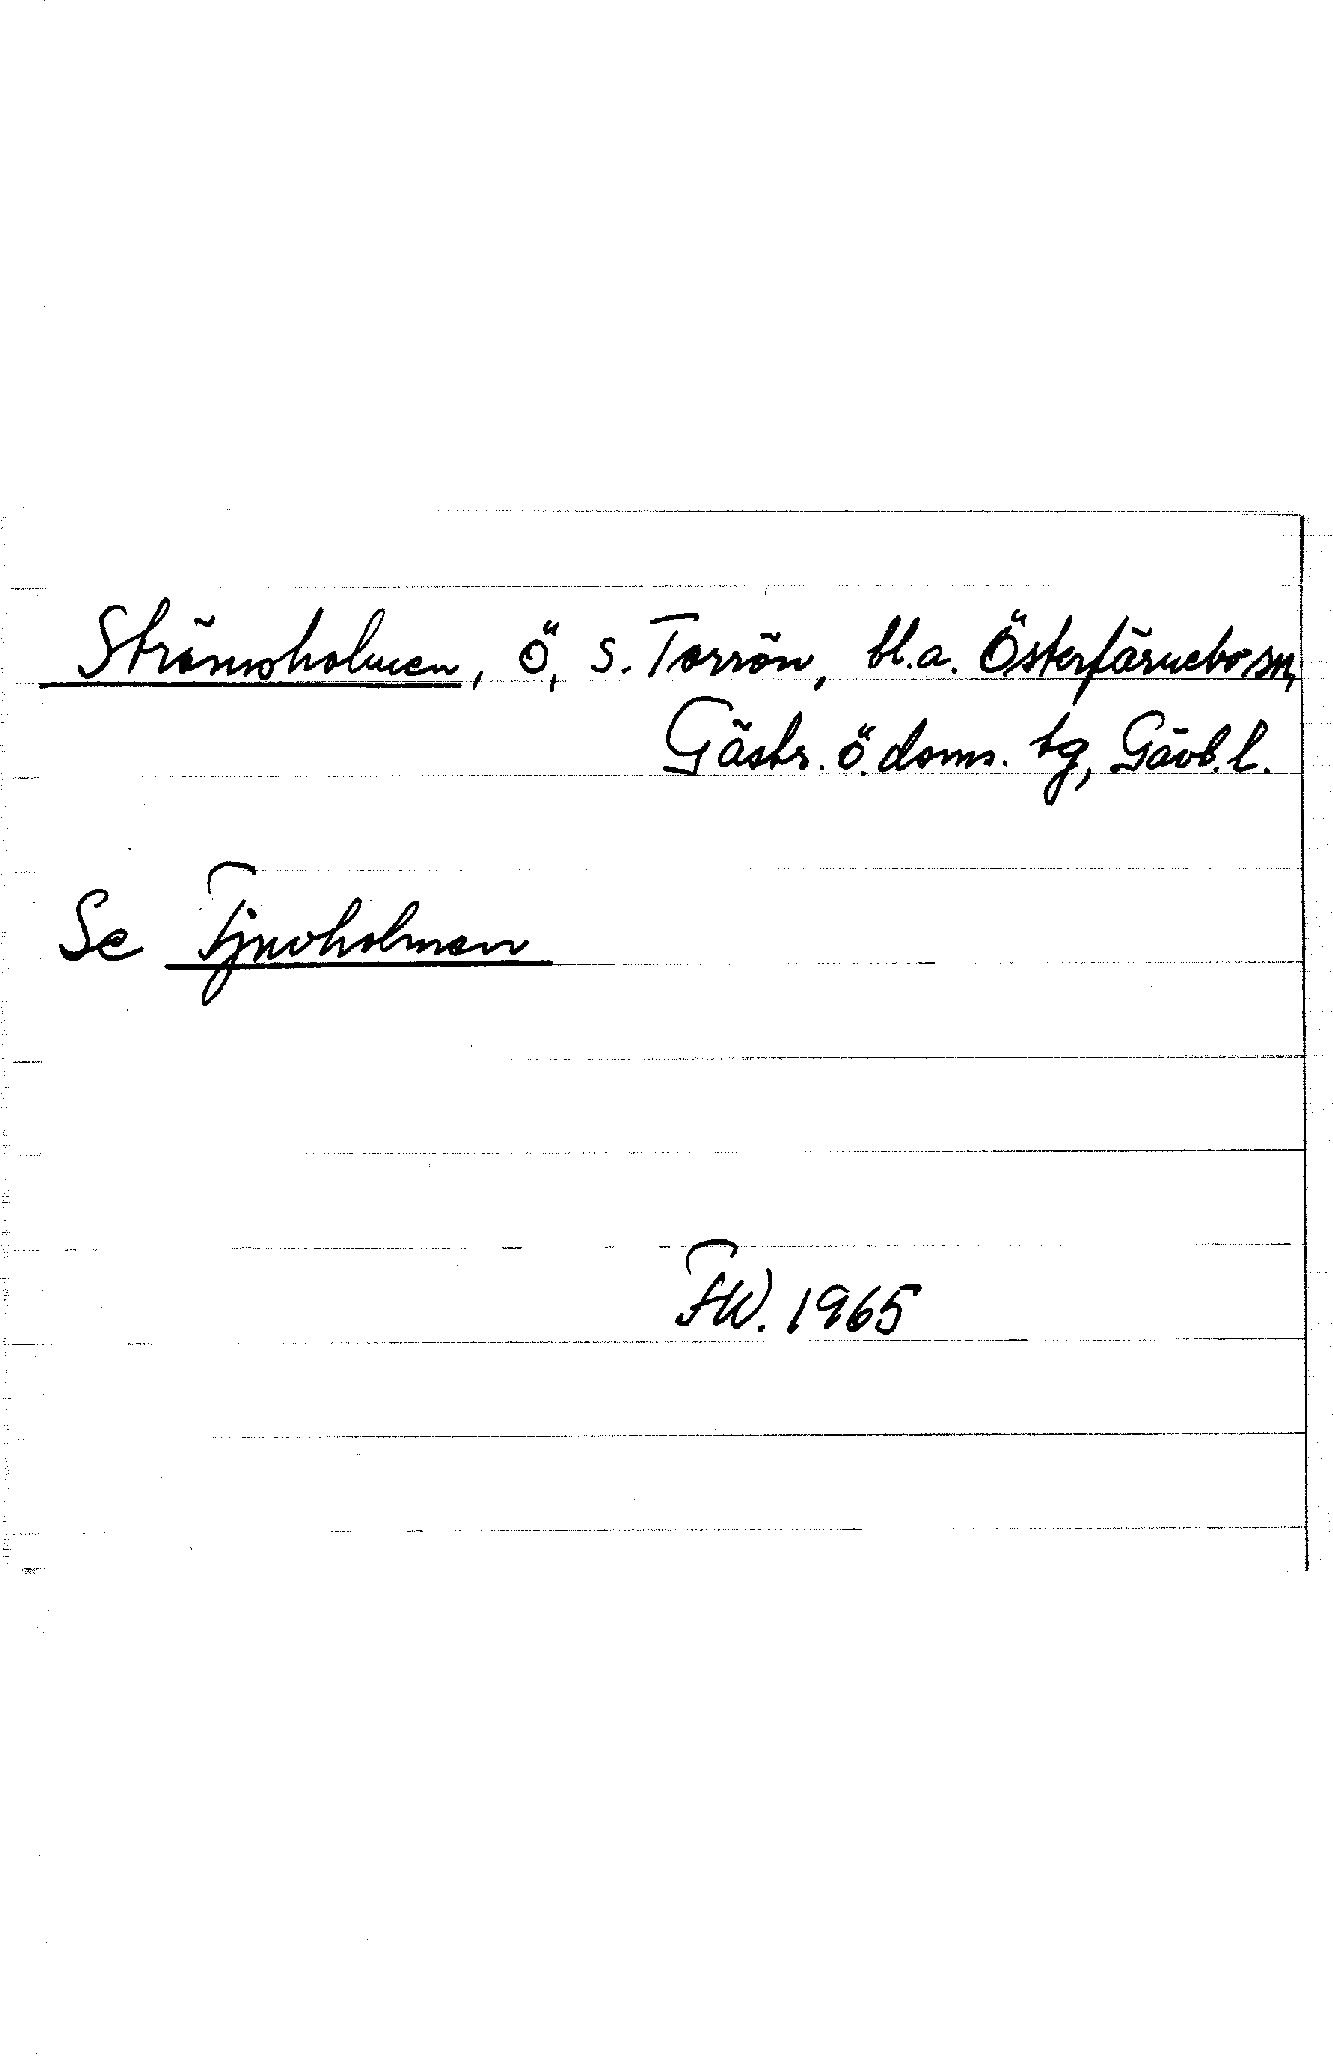 Strömsholmen, ö, s. Torrön, bl.a. Österfärnebo sn,
Gästr. ö. doms. tg, Gävb. l.
Se Tjuvholmen
FW. 1965